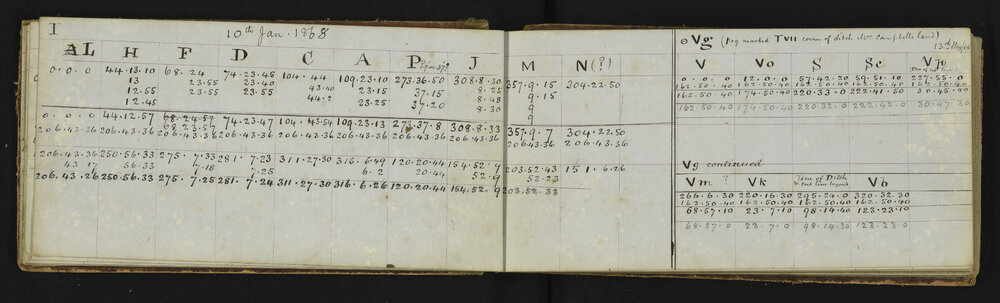 I
10th Jan. 1868
AL H F D C A P J M N(?)
0.0.0 44.13.10 68.24 74.23.45 104.44 109.23.10 273.36.50 308.8.30 357.9.15 304.22.50
13 23.55 23.40 43.40 23.15 37.15 8.25 9.15
12.55 23.55 23.55 44.2 23.25 37.20 8.48 9
12.45 8.30 9
0.0.0 44.12.57 68.24.57 74.23.47 104.43.54 109.23.13 273.37.8 308.8.33 357.9.7 304.22.50
68.23.57
206.43.36 206.43.36 206.43.36 206.43.36 206.43.36 206.43.36 206.43.36 206.43.36 206.43.36 206.43.36
206.43.36 250.56.33 275.7.33 281.7.23 311.27.30 316.6.49 120.20.44 154.52.9 203.52.43 151.6.26
43.17 56.33 7.18 7.25 6.2 20.44 52.9 52.23
206.43.26 250.56.33 275.7.25 281.7.24 311.27.30 316.6.26 120.20.44 154.52.9 203.52.33
⊙ Vg (Peg marked TVII corner of ditch Mr Campbells land)
13th May 68
V Vo S Sc VJc
(line of cut line)
0.0.0 12.0.0 57.42.20 59.51.10 227.55.0
162.50.40 162.50.40 162.50.40 162.50.40 162.50.40
162.50.40 174.50.40 220.33.0 222.41.50 30.45.40
162.50.40 174.50.40 220.33.0 222.42.0 30.47.30
Vg continued
Vm ? Vk Line of Ditch & cut line beyond Vb
266.6.30 220.16.30 295.24.0 320.32.30
162.50.40 162.50.40 162.50.40 162.50.40
68.57.10 23.7.10 98.14.40 123.23.10
68.57.0 23.7.0 98.14.30 123.23.0